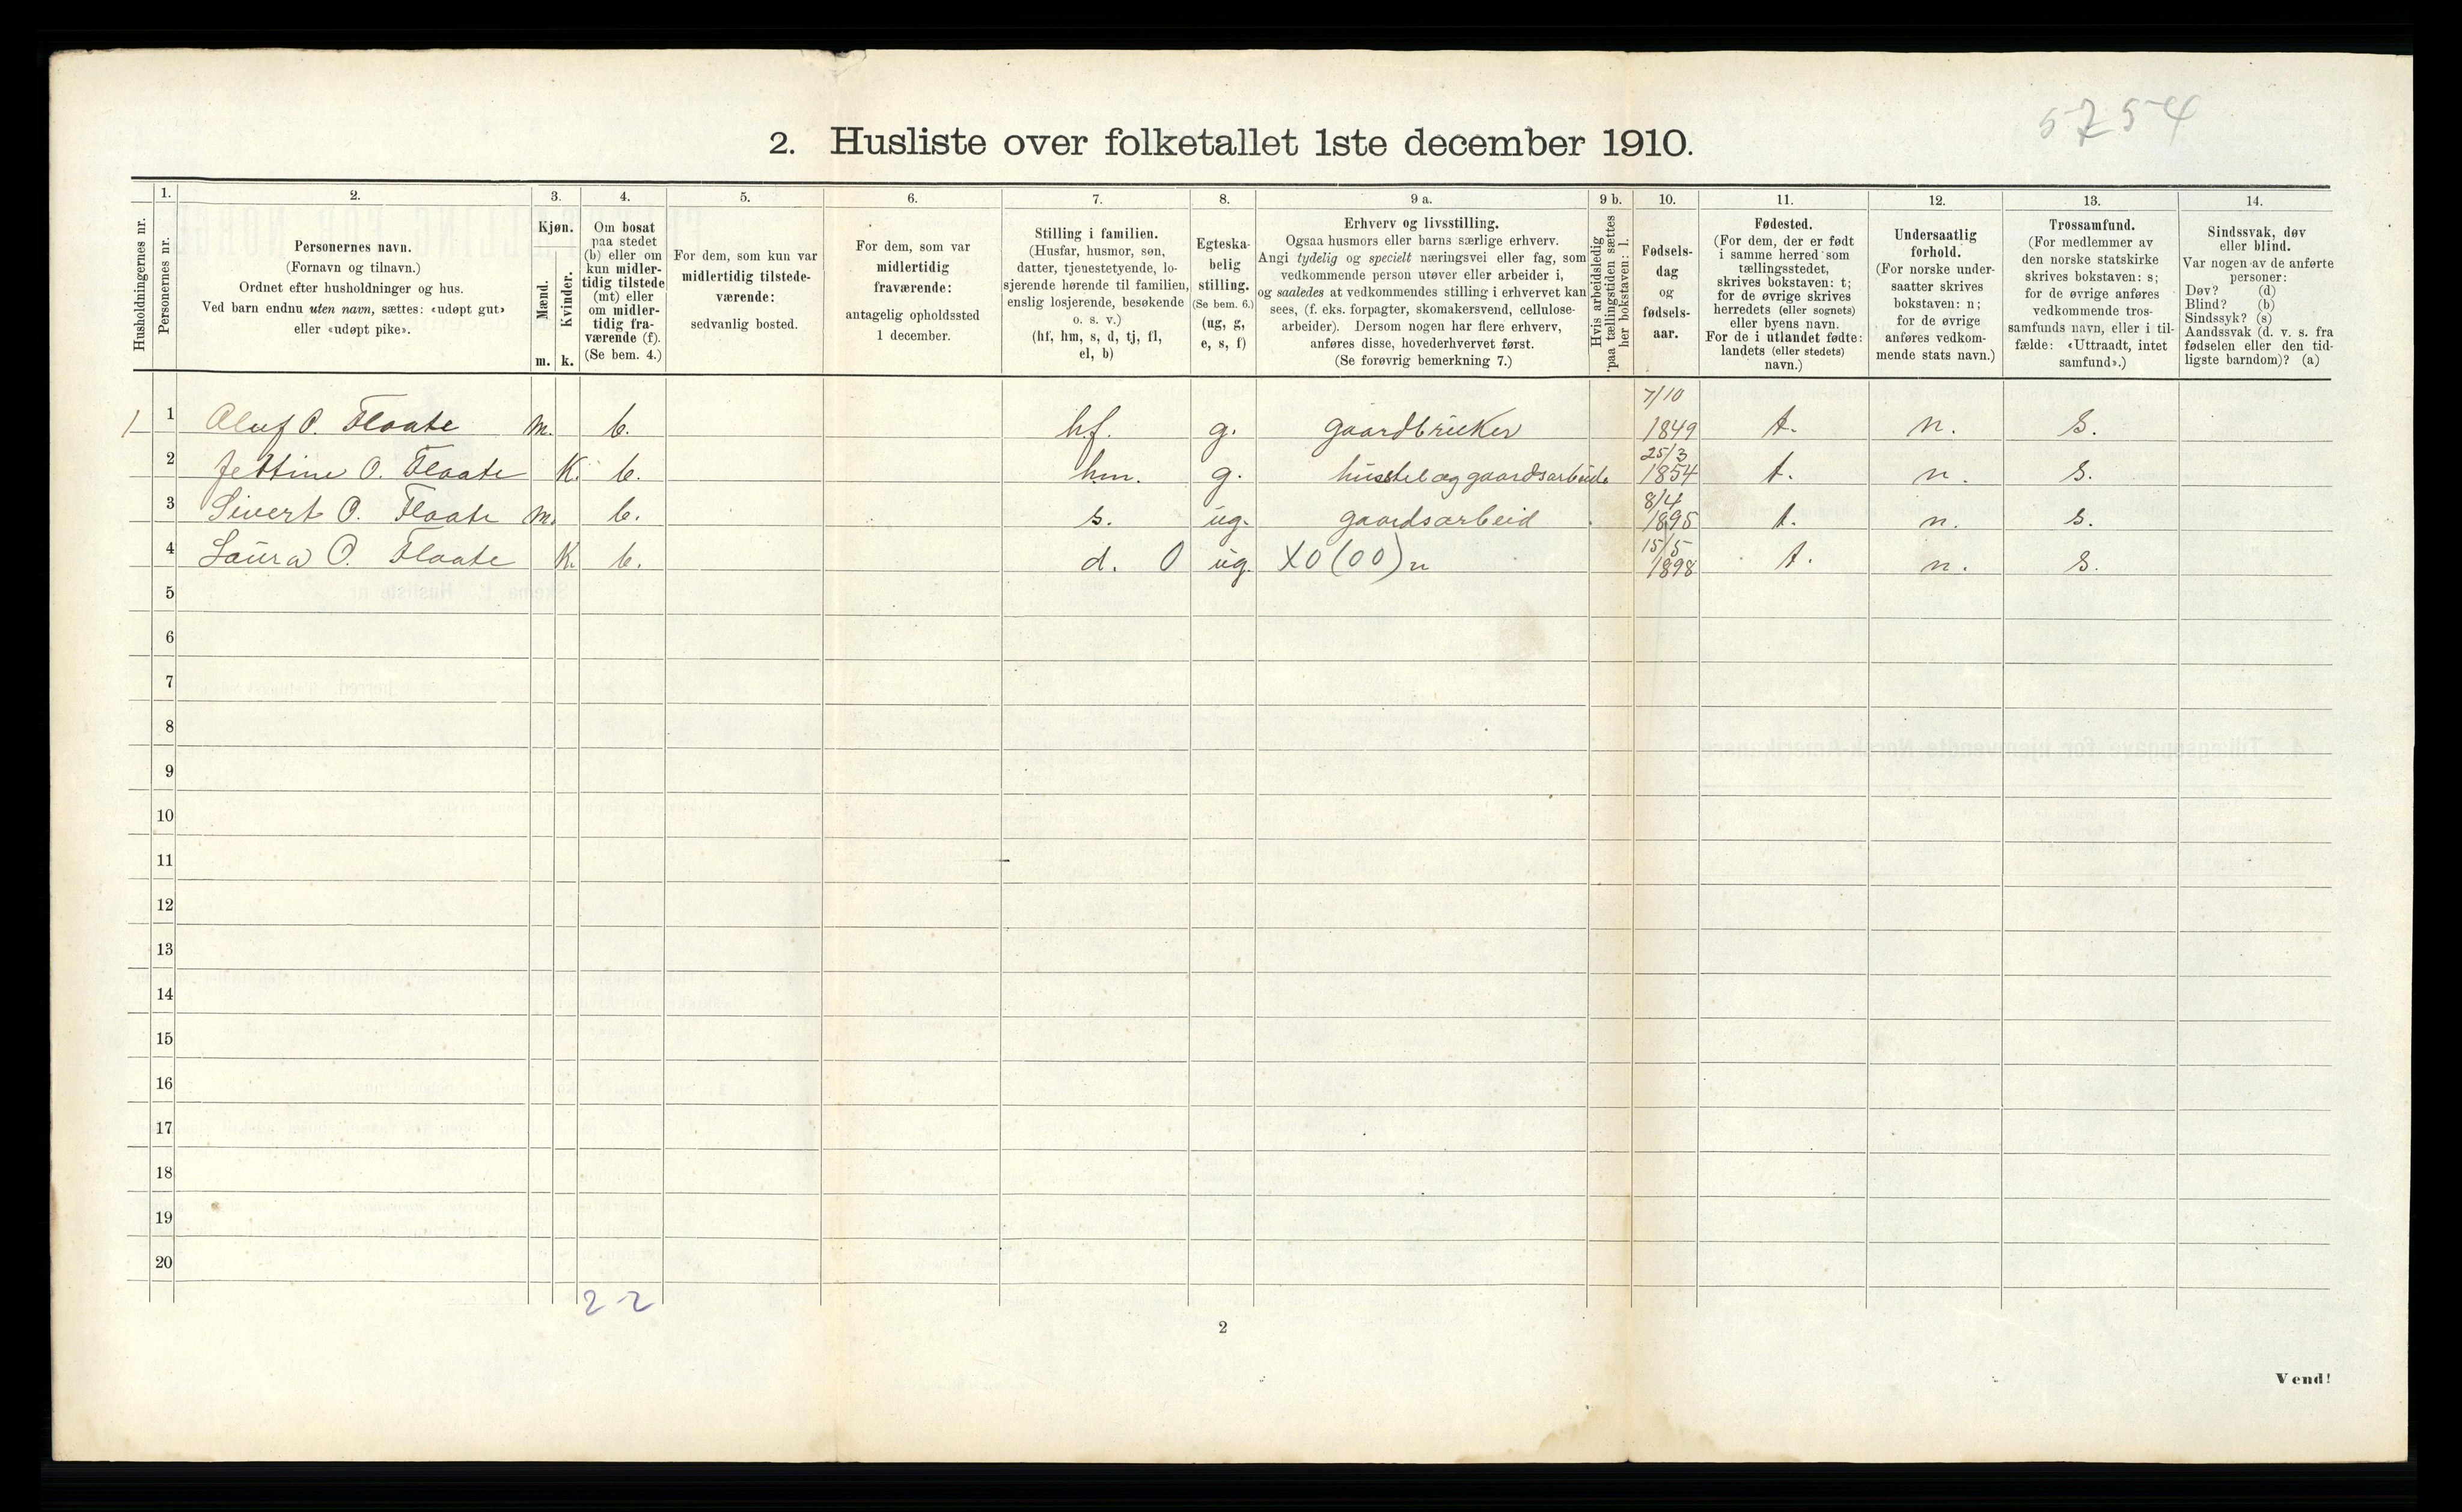 5754
2. Husliste over folketallet 1ste december 1910.
Husholdningernes nr.
1.
Personernes nr.
2.
Personernes navn.
(Fornavn og tilnavn.)
Ordnet efter husholdninger og hus.
Ved barn endnu uten navn, sættes: «udøpt gut»
eller «udøpt pike».
3.
Kjøn.
Mænd.
m.
Kvinder.
k.
4.
Om bosat
paa stedet
(b) eller om
kun midler-
tidig tilstede
(mt) eller
om midler-
tidig fra-
værende (f).
(Se bem. 4.)
5.
For dem, som kun var
midlertidig tilstede-
værende:
sedvanlig bosted.
6.
For dem, som var
midlertidig
fraværende:
antagelig opholdssted
1 december.
7.
Stilling i familien.
(Husfar, husmor, søn,
datter, tjenestetyende, lo-
sjerende hørende til familien,
enslig losjerende, besøkende
o. s. v.)
(hf, hm, s, d, tj, fl,
el, b)
8.
Egteska-
belig
stilling.
(Se bem. 6.)
(ug, g,
e, s, f)
9 a.
Erhverv og livsstilling.
Ogsaa husmors eller barns særlige erhverv.
Angi tydelig og specielt næringsvei eller fag, som
vedkommende person utøver eller arbeider i,
og saaledes at vedkommendes stilling i erhvervet kan
sees, (f. eks. forpagter, skomakersvend, cellulose-
arbeider). Dersom nogen har flere erhverv,
anføres disse, hovederhvervet først.
(Se forøvrig bemerkning 7.)
9 b.
Hvis arbeidsledig
paa tællingstiden sættes
her bokstaven: l.
10.
Fødsels-
dag
og
fødsels-
aar.
11.
Fødested.
(For dem, der er født
i samme herred som
tællingsstedet,
skrives bokstaven: t;
for de øvrige skrives
herredets (eller sognets)
eller byens navn.
For de i utlandet fødte:
landets (eller stedets)
navn.)
12.
Undersaatlig
forhold.
(For norske under-
saatter skrives
bokstaven: n;
for de øvrige
anføres vedkom-
mende stats navn.)
13.
Trossamfund.
(For medlemmer av
den norske statskirke
skrives bokstaven: s;
for de øvrige anføres
vedkommende tros-
samfunds navn, eller i til-
fælde: «Uttraadt, intet
samfund».)
14.
Sindssvak, døv
eller blind.
Var nogen av de anførte
personer:
Døv? (d)
Blind? (b)
Sindssyk? (s)
Aandssvak (d. v. s. fra
fødselen eller den tid-
ligste barndom)? (a)
1 1 Oluf P. Flaate m. b. hf. g. gaardbruker 7/10 1849 t. n. s.
2 Jettine O. Flaate K. b. hm. g. husstel og gaardsarbeide 25/3 1854 t. n. s.
3 Sivert O. Flaate m. b. s. ug. gaardsarbeid 8/4 1895 t. n. s.
4 Laura O. Flaate K. b. d. 0 ug. X0(00)n 15/5 1898 t. n. s.
5
6
7
8
9
10
11
12
13
14
15
16
17
18
19
20
2-2
2
Vend!